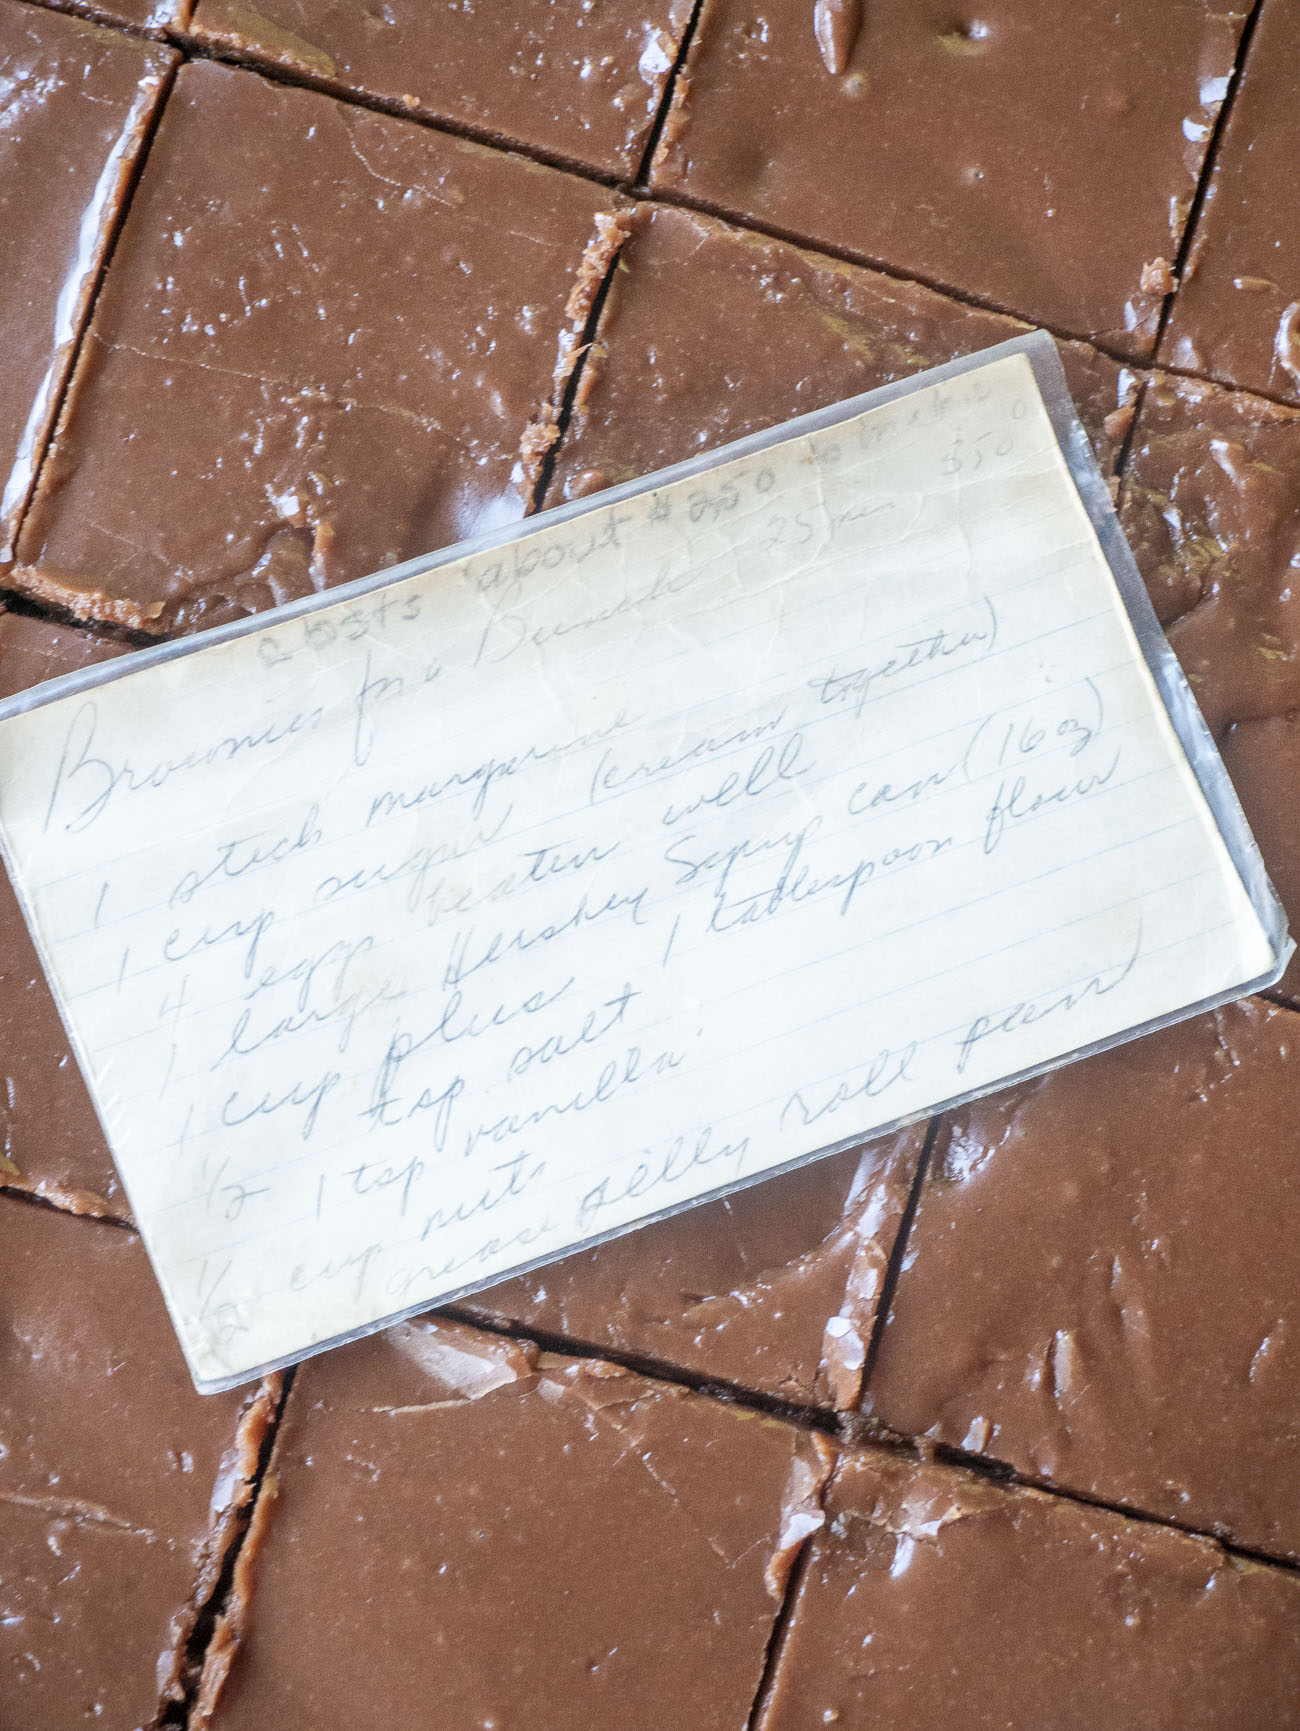 costs about $2.50 to make
Brownies for a Bunch 25 min 350°
1 stick margerine
1 cup sugar (cream together)
4 eggs beaten well
1 large Hershey Syrup can (16 oz)
1 cup plus 1 tablespoon flour
1/2 tsp salt
1 tsp vanilla
1/2 cup nuts
grease jelly roll pan)